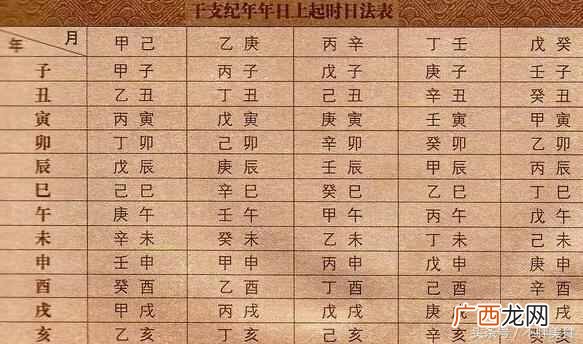 干支纪年年日上起时日法表
月
年 甲己 乙庚 丙辛 丁壬 戊癸
子 甲子 丙子 戊子 庚子 壬子
丑 乙丑 丁丑 己丑 辛丑 癸丑
寅 丙寅 戊寅 庚寅 壬寅 甲寅
卯 丁卯 己卯 辛卯 癸卯 乙卯
辰 戊辰 庚辰 壬辰 甲辰 丙辰
巳 己巳 辛巳 癸巳 乙巳 丁巳
午 庚午 壬午 甲午 丙午 戊午
未 辛未 癸未 乙未 丁未 己未
申 壬申 甲申 丙申 戊申 庚申
酉 癸酉 乙酉 丁酉 己酉 辛酉
戌 甲戌 丙戌 戊戌 庚
广西龙网
亥 乙亥 丁亥 己亥 辛亥 癸亥